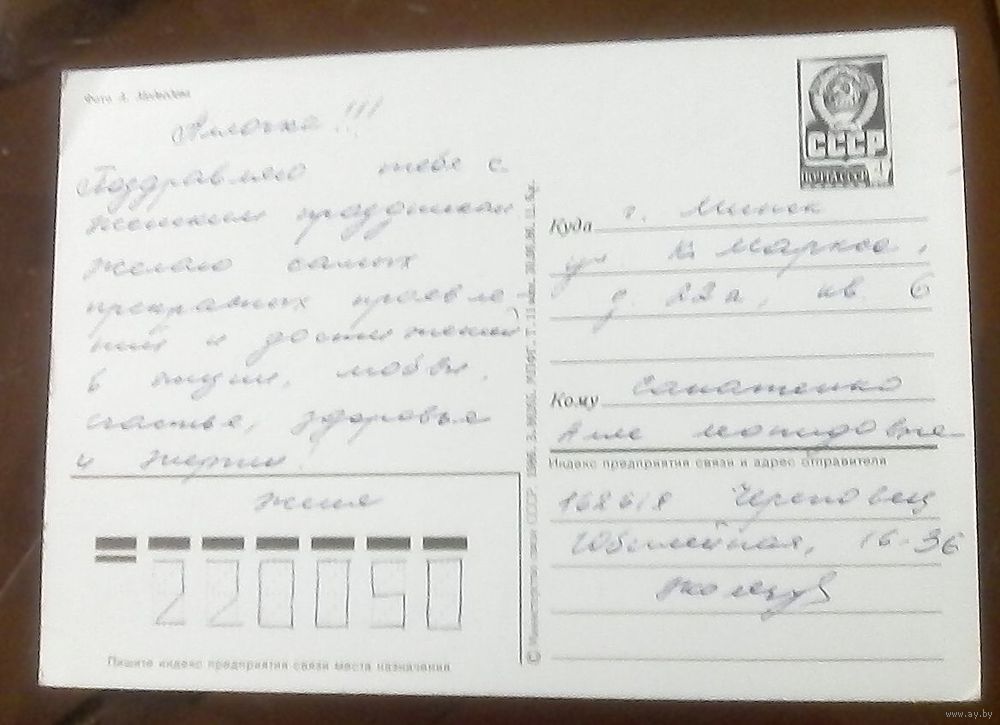 Фото А.
Аллочка!!!
Поздравляю тебя с
женским праздником
желаю самых
прекрасных проявле
ний и достижений
в жизни, любви,
счастья, здоровья
и энергии.
Женя
СССР
ПОЧТА СССР
Куда г. Минск
ул К Маркса,
д. 22а, кв 6
Кому
Алле Леонидовне
Индекс предприятия связи и адрес отправителя
Череповец
Юбилейная, 16-36
220050
Пишите индекс предприятия связи места назначения
© Министерство связи СССР 1985.
www.ay.by